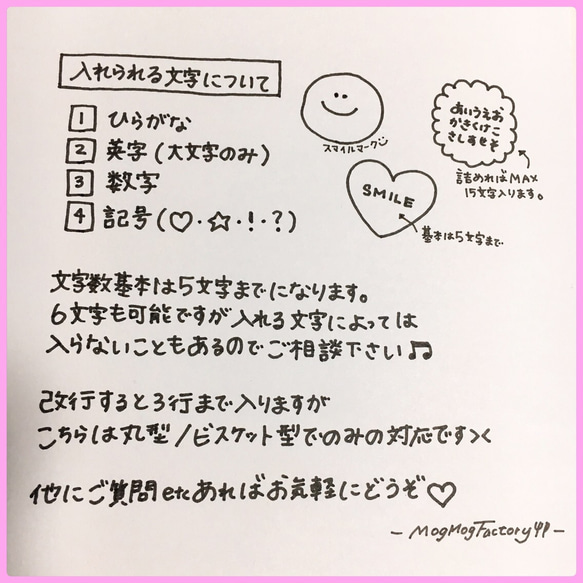 入れられる文字について
1 ひらがな
2 英字(大文字のみ)
3 数字
4 記号(♡・☆・!・?)
スマイルマーク
あいうえお
かきくけこ
さしすせそ
詰めればMAX
15文字入ります。
SMILE
基本は5文字まで
文字数基本は5文字までになります。
6文字も可能ですが入れる文字によっては
入らないこともあるのでご相談下さい♫
改行すると3行まで入りますが
こちらは丸型/ビスケット型でのみの対応です><
他にご質問etcあればお気軽にどうぞ♡
-MogMogFactory-